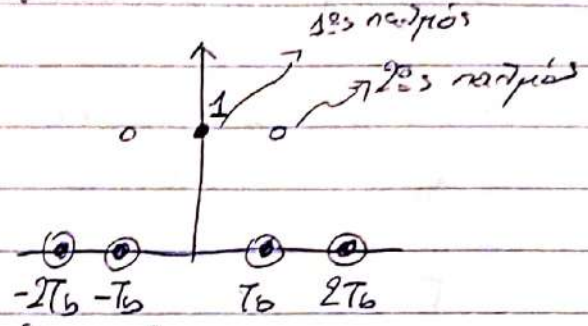 1ος παλμός
2ος παλμός
1
-2Tb -Tb Tb 2Tb